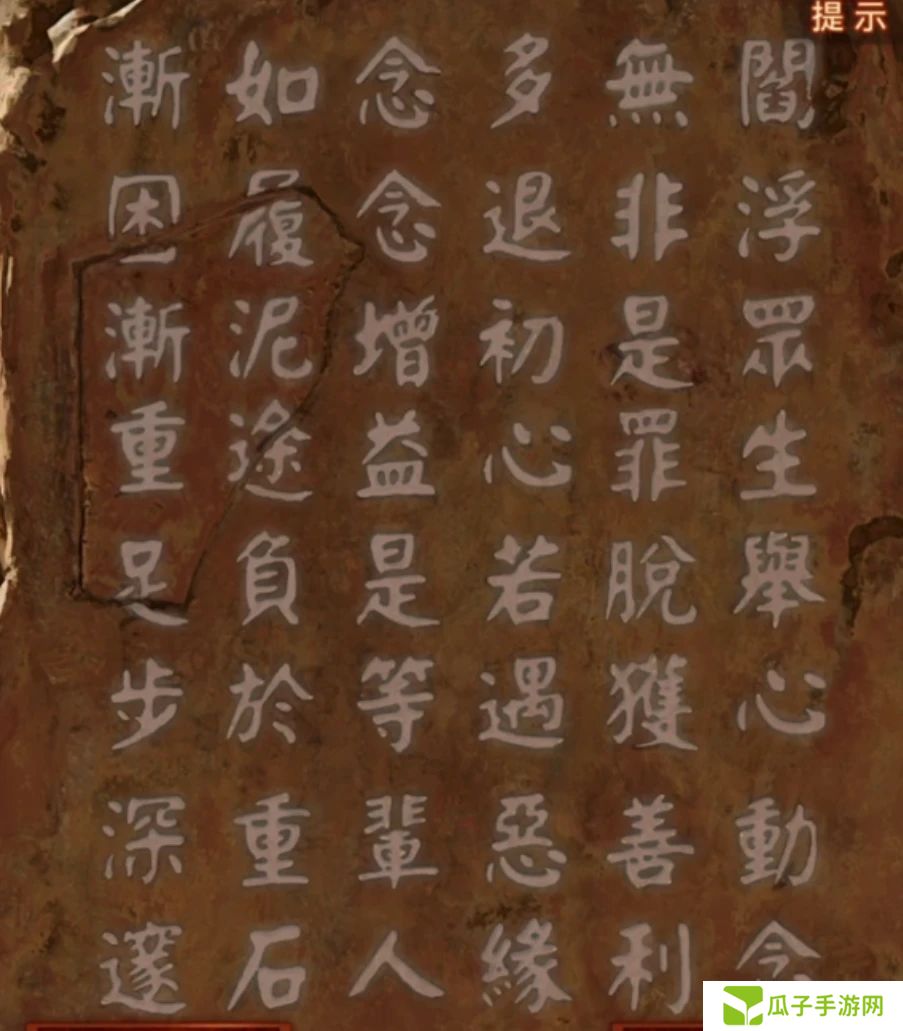 提示
閻浮眾生舉心動念
無非是罪脫獲善利
多退初心若遇惡緣
念念增益是等輩人
如履泥途負於重石
漸困漸重足步深邃
瓜子手游网